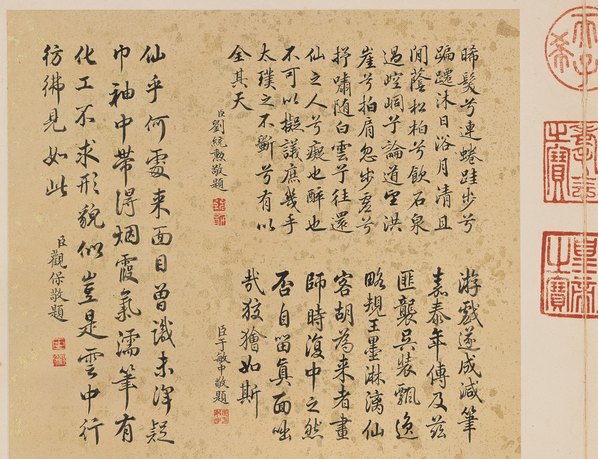 晞髮兮連蜷跬步兮
蹁躚沐日浴月清且
閒蔭松柏兮飲石泉
過崆峒兮論道望洪
崖兮拍肩忽步虛兮
抒嘯隨白雲兮往還
仙之人兮癡也醉也
不可以擬議庶幾乎
太璞之不斲兮有以
全其天
臣劉統勳敬題
游戲遂成減筆
嘉泰年傳及茲
匪襲吳裝飄逸
略規王墨淋漓仙
客胡為來者畫
師時復中之然
否自留真面咄
哉狡獪如斯
臣于敏中敬題
仙乎何處来面目曾識未渾疑
巾袖中帶得烟霞氣濡筆有
化工不求形貌似豈是雲中行
彷彿見如此
臣觀保敬題